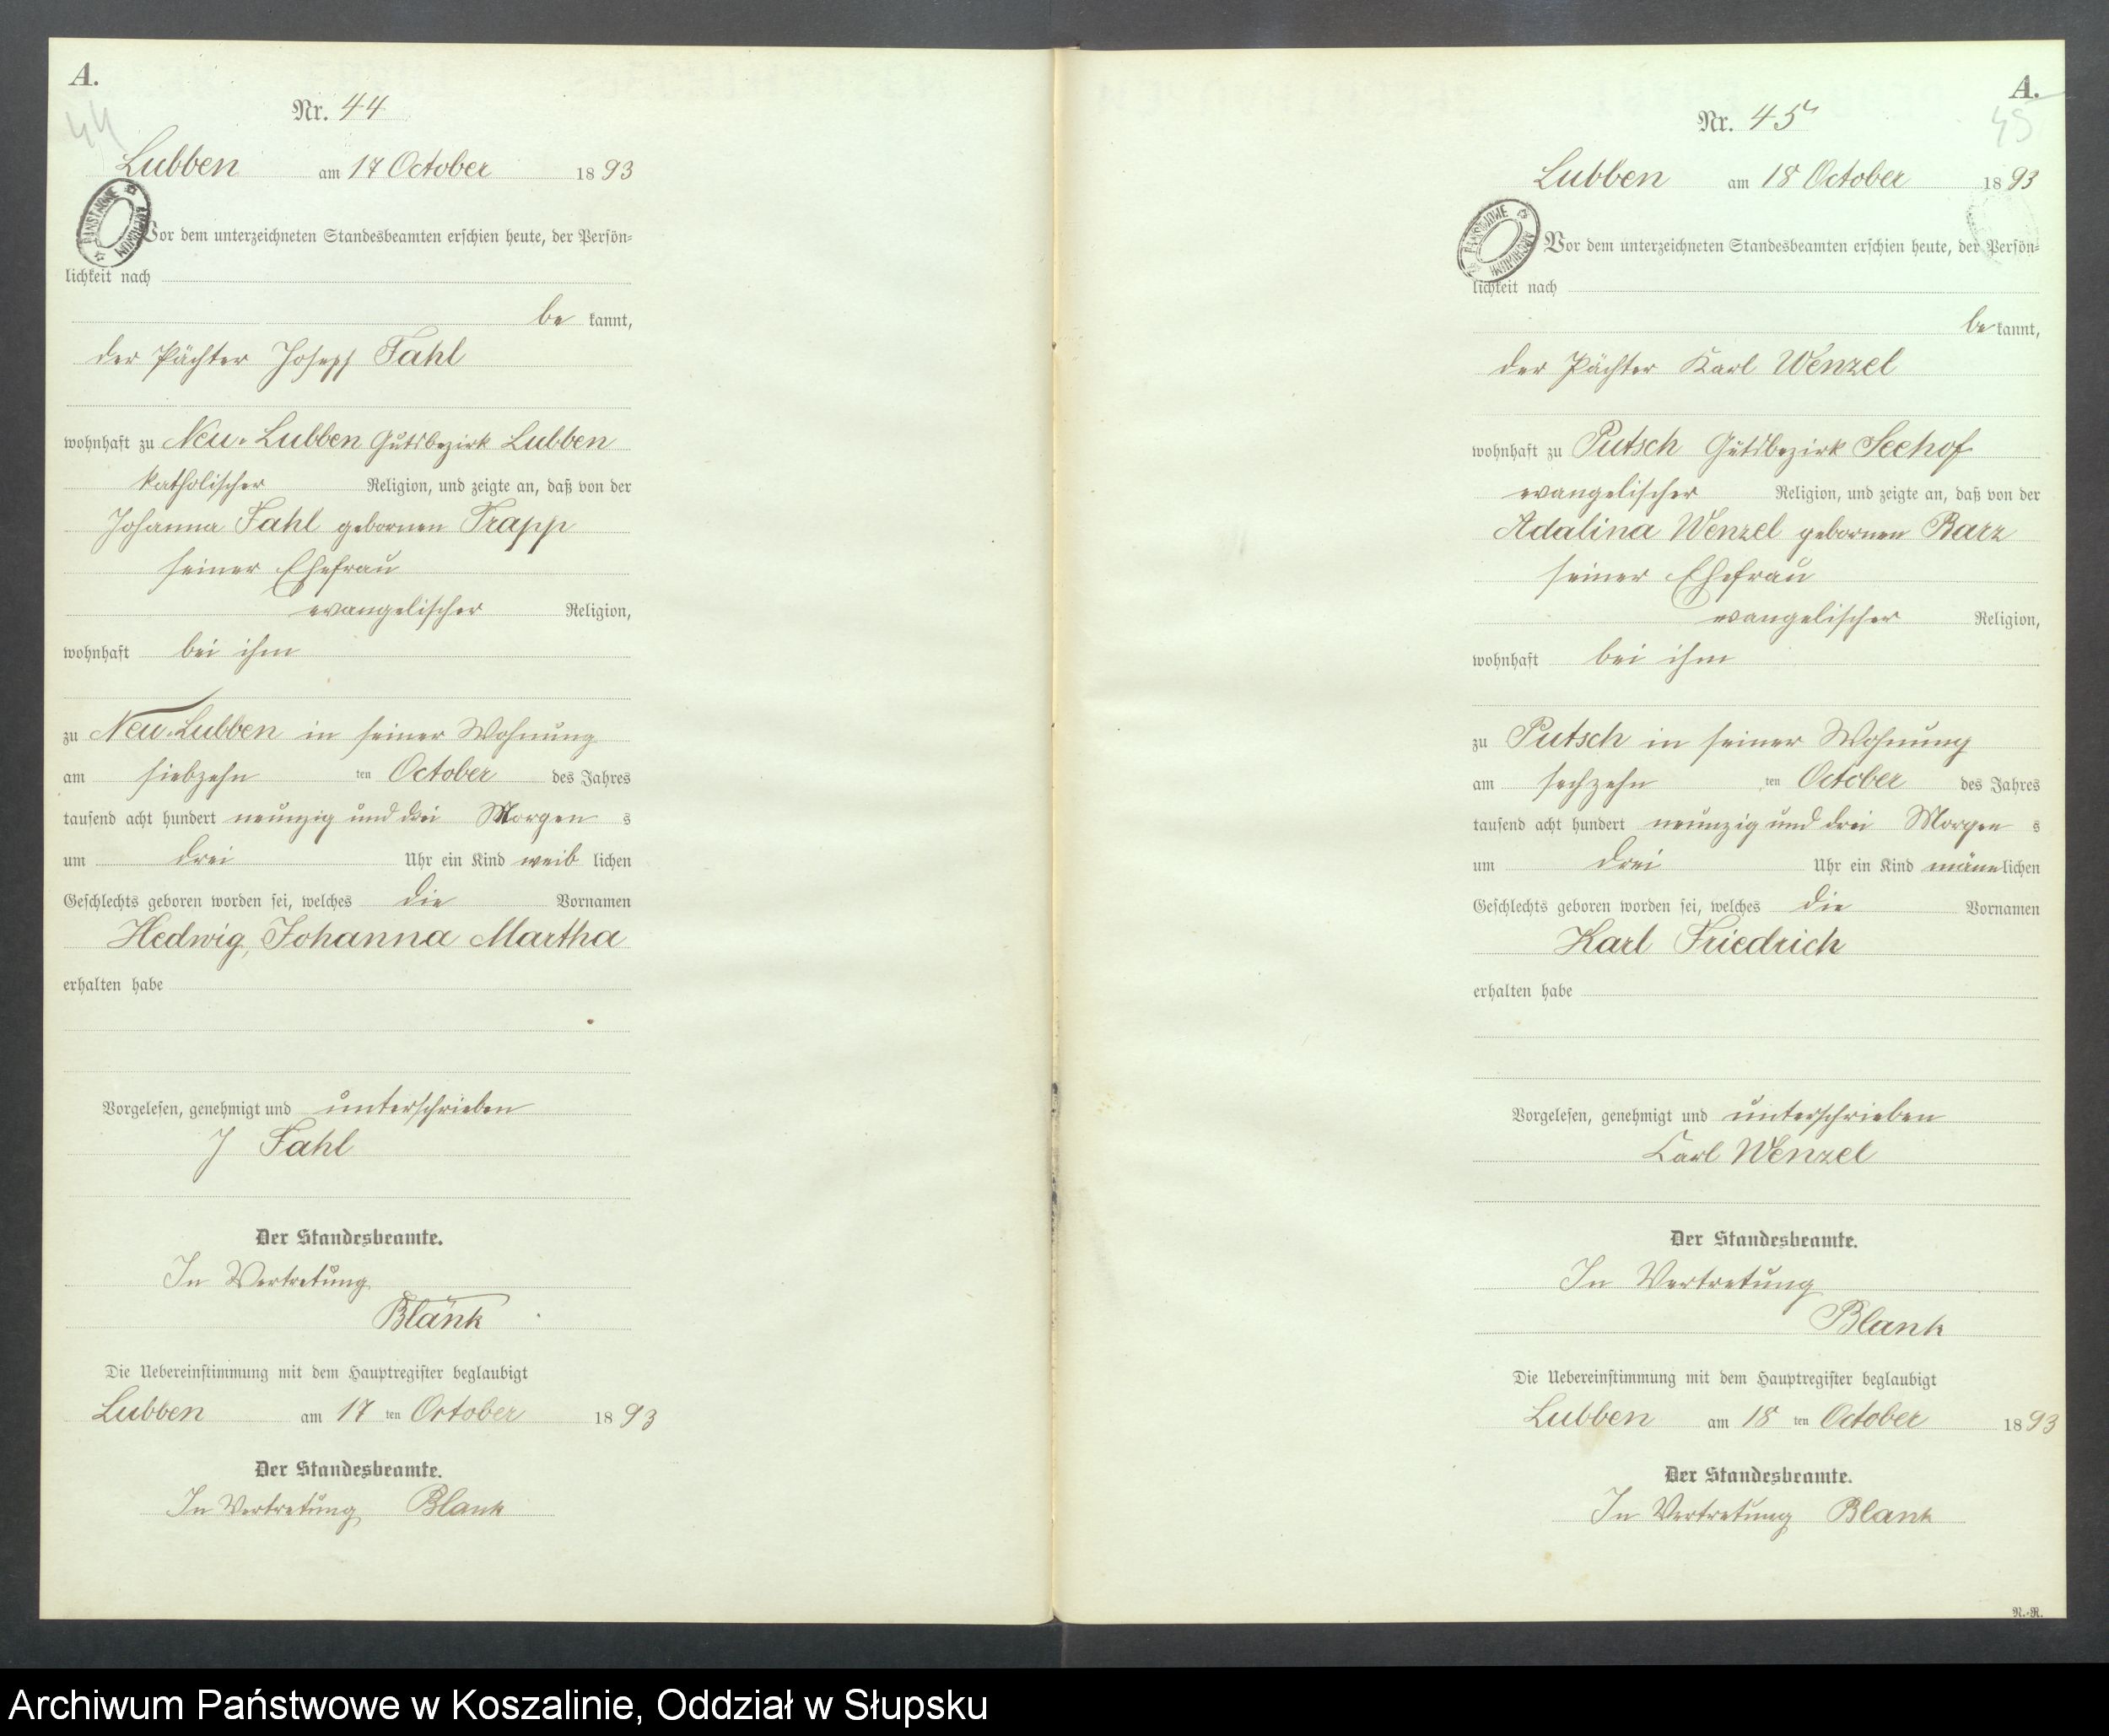 A.
44
Nr. 44
Lubben am 17 October 1893
PANSTWOWE ARCHIWUM
Vor dem unterzeichneten Standesbeamten erschien heute, der Persön-
lichkeit nach
be kannt,
der Pächter Joseph Fahl
wohnhaft zu Neu-Lubben Gutsbezirk Lubben
katholischer Religion, und zeigte an, daß von der
Johanna Fahl gebornen Trapp
seiner Ehefrau
evangelischer Religion,
wohnhaft bei ihm
zu Neu-Lubben in seiner Wohnung
am siebzehn ten October des Jahres
tausend acht hundert neunzig und drei Morgen s
um drei Uhr ein Kind weib lichen
Geschlechts geboren worden sei, welches die Vornamen
Hedwig, Johanna Martha
erhalten habe
Vorgelesen, genehmigt und unterschrieben
J Fahl
Der Standesbeamte.
In Vertretung
Blank
Die Uebereinstimmung mit dem Hauptregister beglaubigt
Lubben am 17 ten October 1893
Der Standesbeamte.
In Vertretung Blank
A.
45
Nr. 45
Lubben am 18 October 1893
PANSTWOWE ARCHIWUM
Vor dem unterzeichneten Standesbeamten erschien heute, der Persön-
lichkeit nach
be kannt,
der Pächter Karl Wenzel
wohnhaft zu Putsch Gutsbezirk Seehof
evangelischer Religion, und zeigte an, daß von der
Adalina Wenzel gebornen Barz
seiner Ehefrau
evangelischer Religion,
wohnhaft bei ihm
zu Putsch in seiner Wohnung
am sechzehn ten October des Jahres
tausend acht hundert neunzig und drei Morgen s
um drei Uhr ein Kind männlichen
Geschlechts geboren worden sei, welches die Vornamen
Karl Friedrich
erhalten habe
Vorgelesen, genehmigt und unterschrieben
Carl Wenzel
Der Standesbeamte.
In Vertretung
Blank
Die Uebereinstimmung mit dem Hauptregister beglaubigt
Lubben am 18 ten October 1893
Der Standesbeamte.
In Vertretung Blank
N.-R.
Archiwum Państwowe w Koszalinie, Oddział w Słupsku